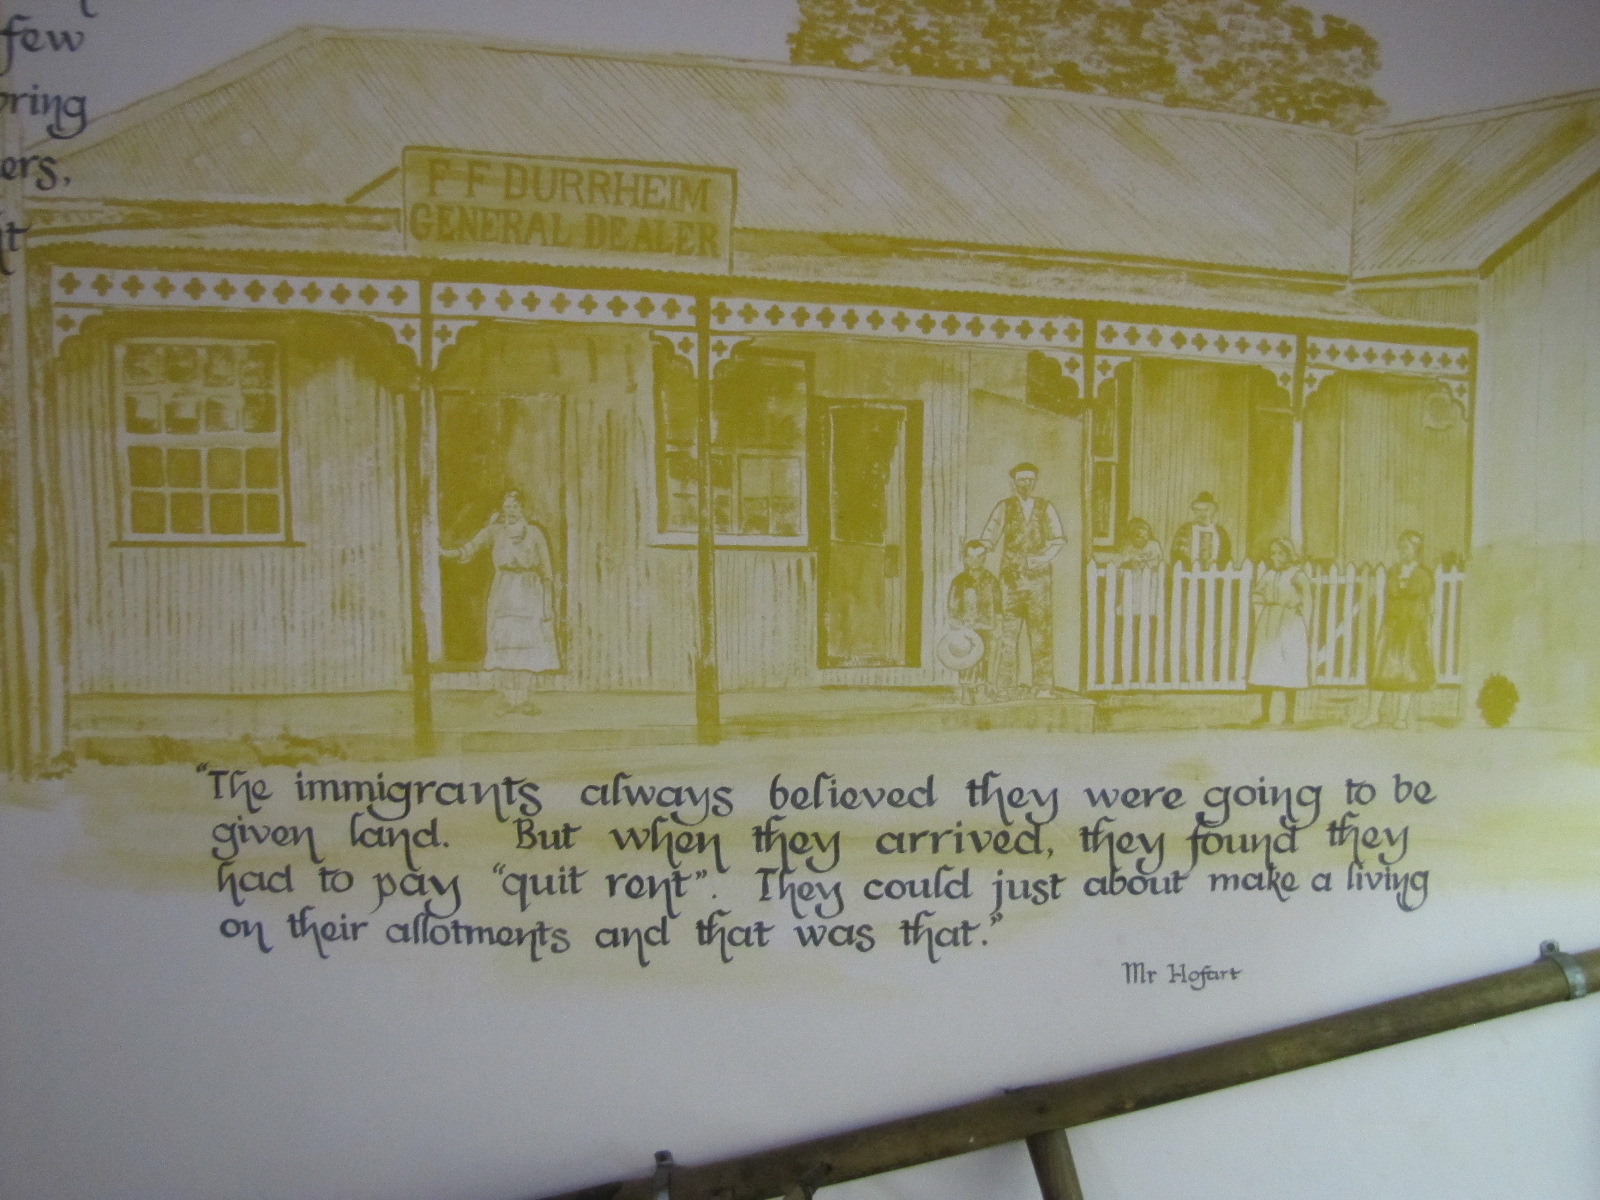 few
ers,
F F DURRHEIM
GENERAL DEALER
"The immigrants always believed they were going to be
given land. But when they arrived, they found they
had to pay "quit rent". They could just about make a living
on their allotments and that was that."
Mr Hofart